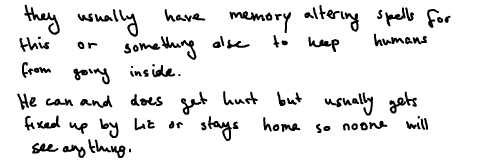 they usually have memory altering spells for
this or something else to keep humans
from going inside.
He can and does get hurt but usually gets
fixed up by Liz or stays home so noone will
see anything.